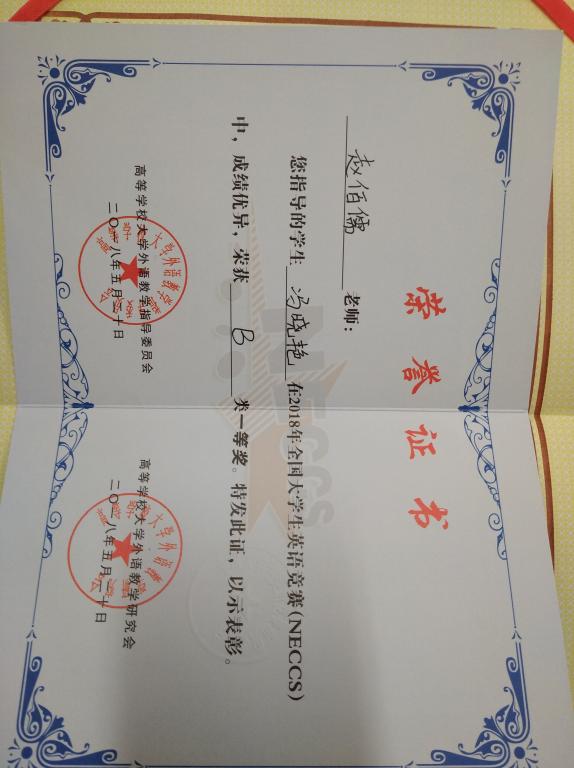 荣誉证书
赵佰儒 老师：
您指导的学生 冯晓艳 在2018年全国大学生英语竞赛(NECCS)
中，成绩优异，荣获 B 类一等奖。特发此证，以示表彰。
高等学校大学外语教学指导委员会
二〇一八年五月二十日
高等学校大学外语教学研究会
二〇一八年五月二十日
NECCS